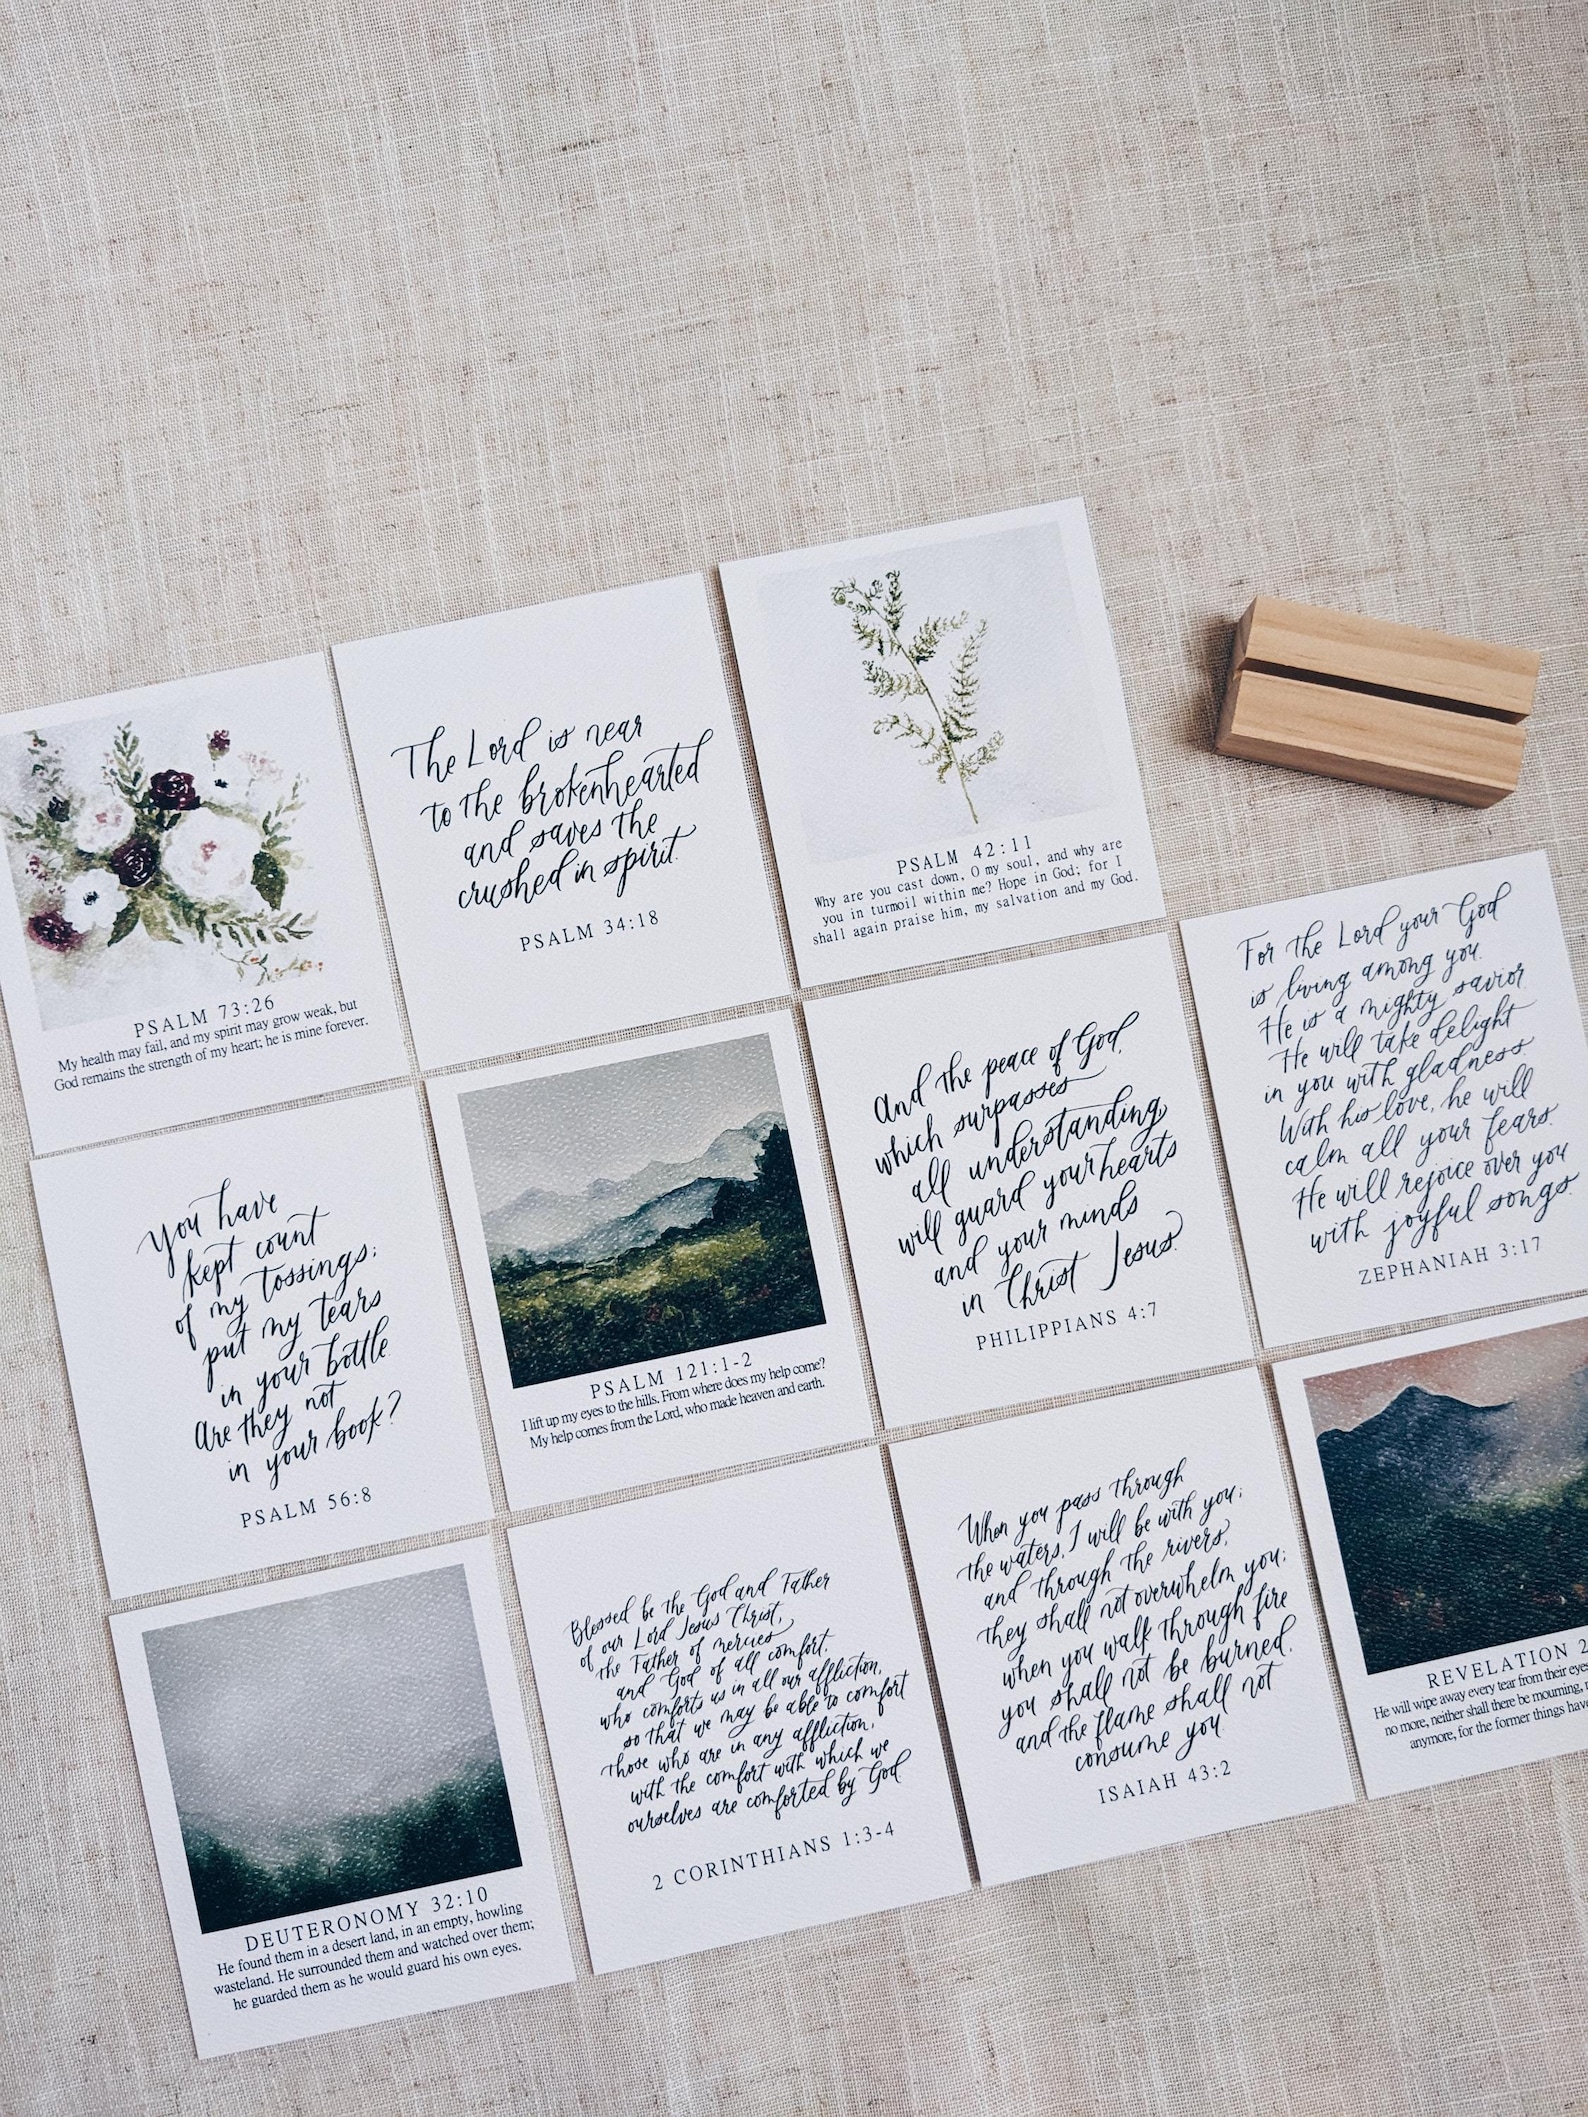 PSALM 73:26
My health may fail, and my spirit may grow weak, but
God remains the strength of my heart; he is mine forever.
The Lord is near
to the brokenhearted
and saves the
crushed in spirit.
PSALM 34:18
PSALM 42:11
Why are you cast down, O my soul, and why are
you in turmoil within me? Hope in God; for I
shall again praise him, my salvation and my God.
You have
kept count
of my tossings;
put my tears
in your bottle.
Are they not
in your book?
PSALM 56:8
PSALM 121:1-2
I lift up my eyes to the hills. From where does my help come?
My help comes from the Lord, who made heaven and earth.
And the peace of God,
which surpasses
all understanding,
will guard your hearts
and your minds
in Christ Jesus.
PHILIPPIANS 4:7
For the Lord your God
is living among you.
He is a mighty savior.
He will take delight
in you with gladness.
With his love, he will
calm all your fears.
He will rejoice over you
with joyful songs.
ZEPHANIAH 3:17
DEUTERONOMY 32:10
He found them in a desert land, in an empty, howling
wasteland. He surrounded them and watched over them;
he guarded them as he would guard his own eyes.
Blessed be the God and Father
of our Lord Jesus Christ,
the Father of mercies
and God of all comfort,
who comforts us in all our affliction,
so that we may be able to comfort
those who are in any affliction,
with the comfort with which we
ourselves are comforted by God
2 CORINTHIANS 1:3-4
When you pass through
the waters, I will be with you;
and through the rivers,
they shall not overwhelm you;
when you walk through fire
you shall not be burned,
and the flame shall not
consume you.
ISAIAH 43:2
REVELATION 2
He will wipe away every tear from their eyes
no more, neither shall there be mourning,
anymore, for the former things have